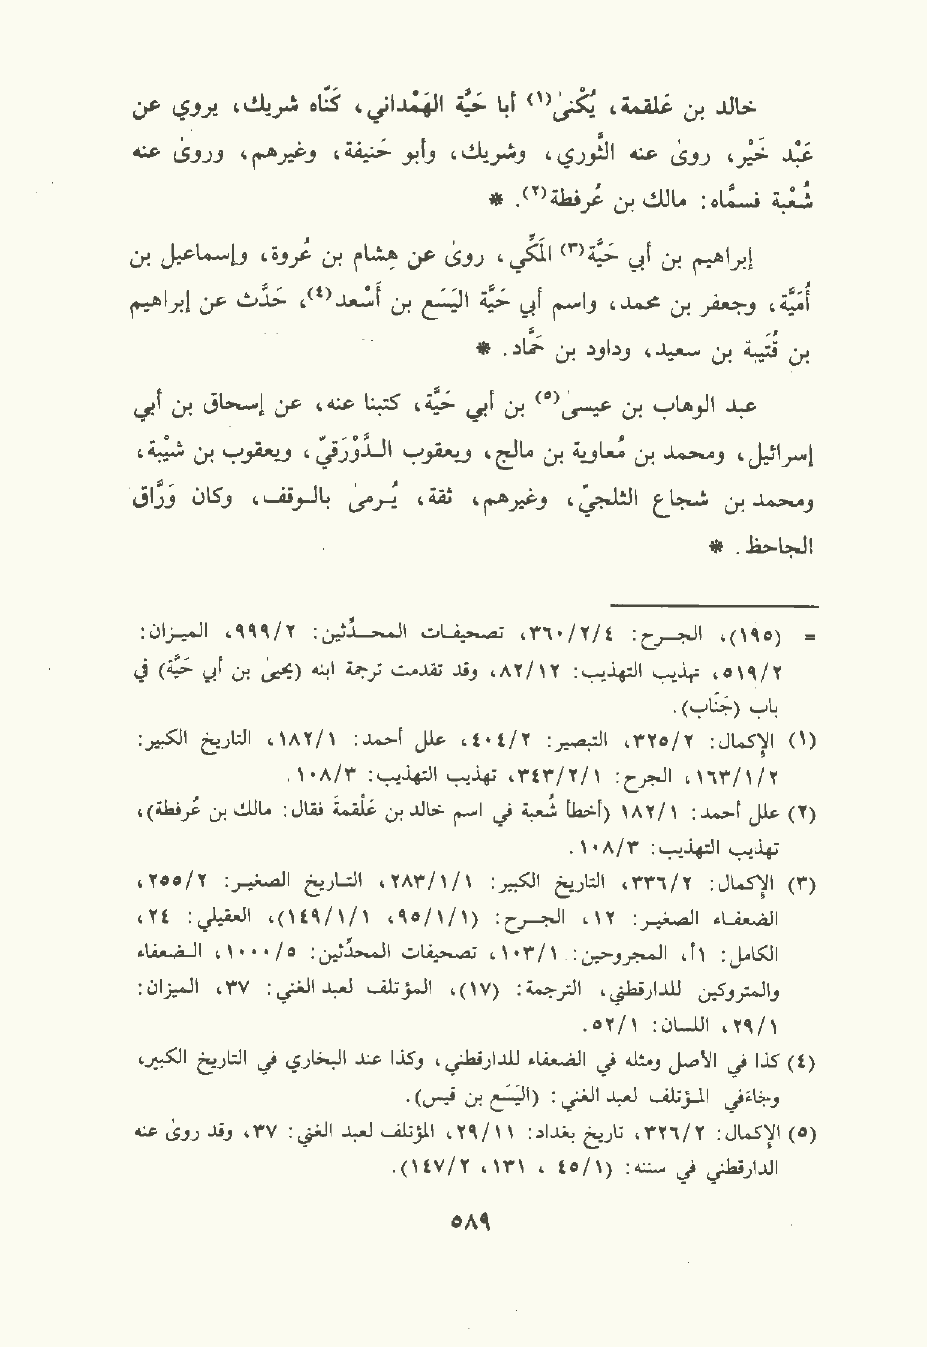 خالد بن عَلقمة، يُكْنىٰ(١) أبا حَيَّة الهَمْداني، كَنَّاه شريك، يروي عن
عَبْد خَيْر، روىٰ عنه الثَّوري، وشريك، وأبو حَنيفة، وغيرهم، وروىٰ عنه
شُعْبة فسمَّاه: مالك بن عُرفطة(٢). *
إبراهيم بن أبي حَيَّة(٣) المَكِّي، روىٰ عن هِشام بن عُروة، وإسماعيل بن
أُمَيَّة، وجعفر بن محمد، واسم أبي حَيَّة اليَسَع بن أَسْعد(٤)، حَدَّث عن إبراهيم
بن قُتَيبة بن سعيد، وداود بن حَمَّاد. *
عبد الوهاب بن عيسىٰ(٥) بن أبي حَيَّة، كتبنا عنه، عن إسحاق بن أبي
إسرائيل، ومحمد بن مُعاوية بن مالج، ويعقوب الدَّوْرَقيّ، ويعقوب بن شَيْبة،
ومحمد بن شجاع الثلجيّ، وغيرهم، ثقة، يُرمىٰ بالوقف، وكان وَرَّاق
الجاحظ. *
= (١٩٥)، الجرح: ٤/٢/٣٦٠، تصحيفات المحدّثين: ٢/٩٩٩، الميزان:
٢/٥١٩، تهذيب التهذيب: ١٢/٨٢، وقد تقدمت ترجمة ابنه (يحيىٰ بن أبي حَيَّة) في
باب (جَنَاب).
(١) الإكمال: ٢/٣٢٥، التبصير: ٢/٤٠٤، علل أحمد: ١/١٨٢، التاريخ الكبير:
٢/١/١٦٣، الجرح: ١/٢/٣٤٣، تهذيب التهذيب: ٣/١٠٨.
(٢) علل أحمد: ١/١٨٢ (أخطأ شُعبة في اسم خالد بن عَلْقمَة فقال: مالك بن عُرفطة)،
تهذيب التهذيب: ٣/١٠٨.
(٣) الإكمال: ٢/٣٣٦، التاريخ الكبير: ١/١/٢٨٣، التاريخ الصغير: ٢/٢٥٥،
الضعفاء الصغير: ١٢، الجرح: (١/١/٩٥، ١/١/١٤٩)، العقيلي: ٢٤،
الكامل: ١أ، المجروحين: ١/١٠٣، تصحيفات المحدّثين: ٥/١٠٠٠، الضعفاء
والمتروكين للدارقطني، الترجمة: (١٧)، المؤتلف لعبد الغني: ٣٧، الميزان:
١/٢٩، اللسان: ١/٥٢.
(٤) كذا في الأصل ومثله في الضعفاء للدارقطني، وكذا عند البخاري في التاريخ الكبير،
وجاء في المؤتلف لعبد الغني: (اليَسَع بن قيس).
(٥) الإكمال: ٢/٣٢٦، تاريخ بغداد: ١١/٢٩، المؤتلف لعبد الغني: ٣٧، وقد روىٰ عنه
الدارقطني في سننه: (١/٤٥ ، ١٣١، ٢/١٤٧).
٥٨٩